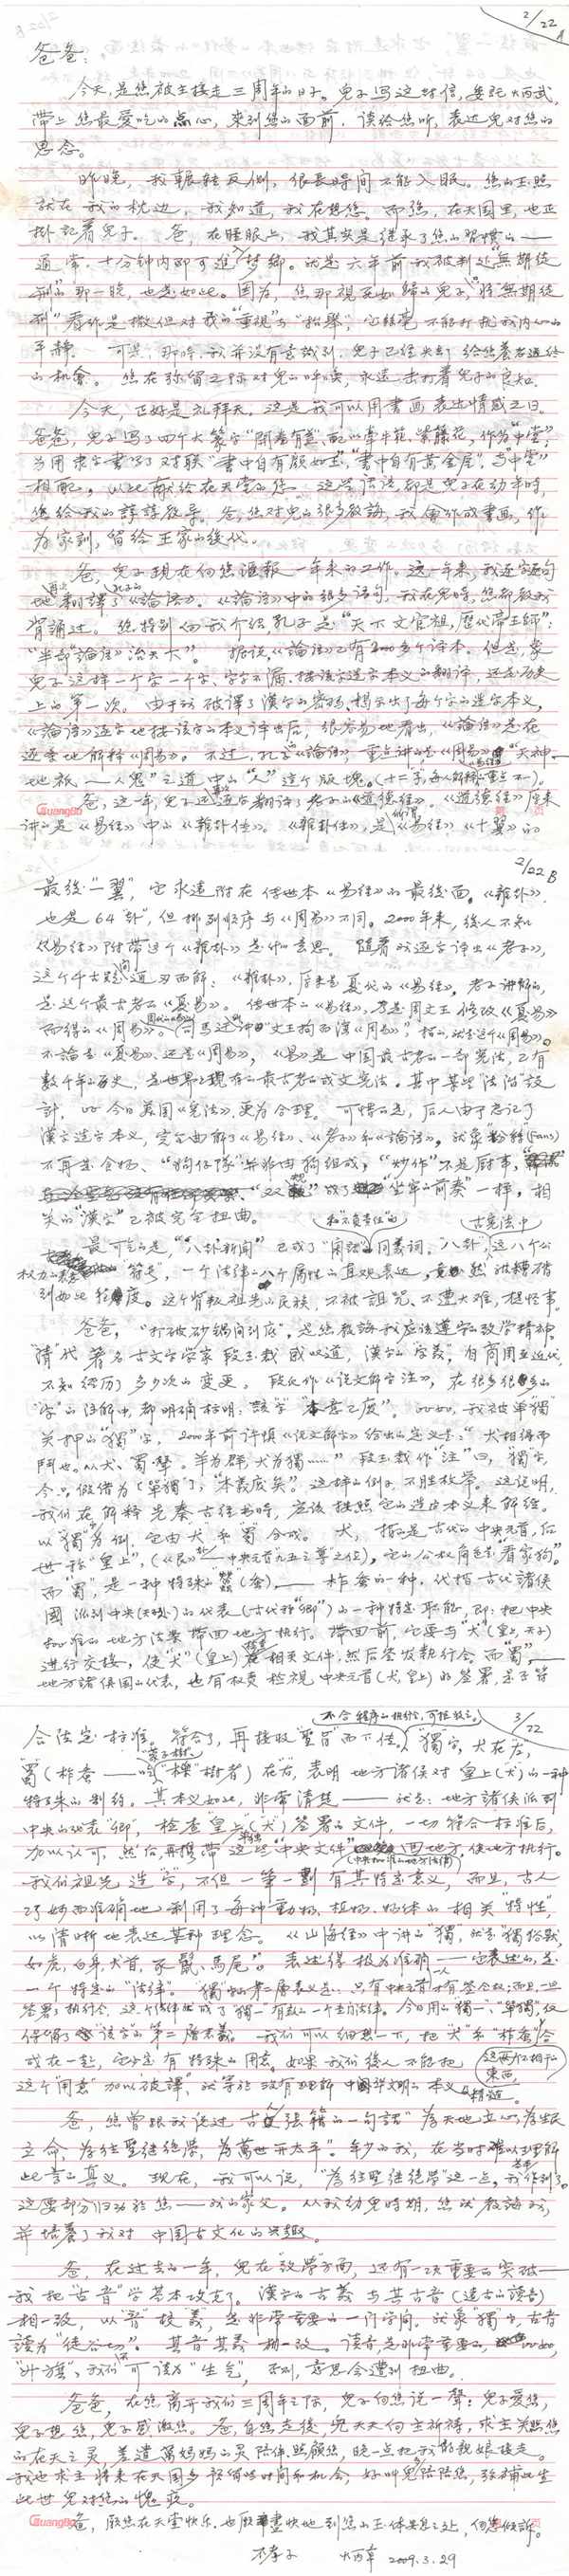 2/22 A
爸爸：
今天，是您被主接走三周年的日子。兒子写这封信，委託炳武，
帶上您最愛吃的點心，来到您的面前，读给您听，表达兒对您的
思念。
昨晚，我輾轉反側，很長時间不能入眠。您的玉照
就在我的枕边。我知道，我在想您。而您，在天国里，也正
掛記着兒子。爸，在睡眠上，我其实是继承了您的習慣的——
通常，十分钟内即可進入梦鄉。就是六年前我被判处“無期徒
刑”的那一晚，也是如此。因为，您那視死如歸的兒子，将“無期徒
刑”看作是撒但对我的“重視”与“抬舉”，它丝毫不能打扰我内心的
平靜。可是，那時，我并没有意識到，兒子已经失却给您養老送终
的机會。您在弥留之际对兒的呼唤，永远击打着兒子的良知。
今天，正好是礼拜天。这是我可以用書画表达情感之日。
爸爸，兒子写了四个大篆字“開卷有益”，配以牵牛花、紫藤花，作为“中堂”；
另用隶字書写了对聯“書中自有顏如玉”，“書中自有黄金屋”，与“中堂”
相配。以此献给在天堂的您。这些话语，都是兒子在幼年時，
您给我的諄諄教导。爸，您对兒的很多教誨，我會作成書画，作
为家訓，留给王家的後代。
爸，兒子現在向您滙報一年来的工作。这一年来，我逐字逐句
地再次翻譯了孔子的《論语》。《論语》中的很多语句，我在兒時，您都教我
背誦过。您特别向我介绍，孔子是“天下文官祖，歷代帝王師”；
“半部《論语》治天下”。据说，《論语》已有300多个译本。但是，象
兒子这样一个字一个字、字字不漏、按该字造字本义的翻译，还是历史
上的第一次。由于我破译了漢字的密码，揭示出了每个字的造字本义，
《論语》逐字地按该字的本义译出后，很容易地看出，《論语》是在
逐章地解释《周易》。不过，孔子的《論语》，重点讲的是《周易》的“天神——
地祇——人鬼”之道中的“人”这个版塊。
爸，这一年，兒子还逐字翻译了老子的《道德经》。《道德经》原来
讲的是《易经》中的《雜卦传》。《雜卦传》，是解释《易经》《十翼》的
GuangBo
页
2/22 B
最後“一翼”，它永遠附在传世本《易经》的最後面。《雜卦》
也是64“卦”，但排列順序与《周易》不同。2000年来，後人不知
《易经》附帶这个《雜卦》是什么意思。隨着我逐字译出《老子》，
这个千古疑问迎刃而解：《雜卦》，原来是夏代的《易经》。老子讲解的，
是这个最古老的《夏易》。传世本的《易经》，乃是周文王修改《夏易》
而得的《周易》。（司馬迁讲的“文王拘而演《周易》”，指的就是这个《周易》）。
不論是《夏易》，还是《周易》，《易》是中国最古老的一部宪法，已有
数千年的历史，是世界上現存的最古老的成文宪法。其中某些“法治”设
計，比今日美国《宪法》，更为合理。可惜的是，后人由于忘记了
漢字造字本义，完全曲解了《易经》、《老子》和《論语》，就象“粉絲”(Fans)
不再是食物、“狗仔隊”并非由狗組成，“炒作”不是厨事，
“双規”成了“坐牢的前奏”一样，相
关的“漢字”已被完全扭曲。
最可气的是，“八卦新闻”已成了和不負責任的同義词。“八卦”，古宪法中这八个公
权力的表 符号，一个法律的八个屬性的直观表达，竟然被糟蹋
到如此程度。这个背叛祖先的民族，不被詛咒、不遭大难，才怪事。
爸爸，“打破砂鍋问到底”，是您教誨我应该遵守的致学精神。
“清”代著名古文字学家段玉裁感叹道，漢字的字義，自商周至近代，
不知经历了多少次的变更。段氏作《说文解字注》，在很多很多的
“字”的注解中，都明确标明：該字“本意已廢”。比如，我被单“獨”
关押的“獨”字，2000年前许慎《说文解字》给出的定义是：“犬相得而
鬥也。从犬，蜀声。羊为群，犬为獨……”段玉裁作“注”曰，“獨”字，
今只假借为（单獨）了，“本義廢矣”。这样的例子，不胜枚举。这说明，
我们在解释先秦古经书時，应该按照它的造字本义来解经。
以“獨”为例，它由犬和蜀合成。犬，指的是古代的中央元首，后
世称“皇上”，（《艮》卦——中央元首“九五之尊”之位），它的公权角色是“看家狗”。
而“蜀”，是一种特殊的蠶（蚕），——柞蚕的一种，代指古代諸侯
國派到中央（天朝）的代表（古代称“卿”）的一种特定职能，即：把中央
批准的地方法案帶回地方执行。帶回前，它要与“犬”（皇上，天子）
進行交接，使“犬”（皇上）核查相关文件，然后签发執行令。而“蜀”，——
地方諸侯国的代表，也有权责检視中央元首（犬，皇上）的签署，是否符
3/22
合法定标准。符合了，再接收“聖旨”而下传。不合程序的执行令，可拒收之。“獨”字，犬在左，
蜀（柞蚕——吃“櫟”樹者）在右，表明地方諸侯对皇上（犬）的一种
特殊的制约。其本义如此，非常清楚——就是：地方諸侯派到
中央的代表“卿”，检查皇上（犬）签署的文件，一切符合标准后，
加以认可，然后再携帶这些“中央文件”回地方，使地方执行。
我们祖先造“字”，不但一筆一劃有其特定意义，而且，古人
巧妙而准确地利用了每种動物、植物、物体的相关“特性”，
以清晰地表达某种理念。《山海经》中讲的“獨”，就是“獨狢獸，
如虎，白身，犬首，豕鬣，馬尾”。表述得极为准确——它表述的，是
一个特定的“法律”。“獨”的第二層表义是：只有中央元首才有签令权；而且一旦
签署了执行令，这个法律就成了“獨一”有效的一个主力法律。今日用的“獨一”、“单獨”，仅
保留了該字的第二層本義。我们可以细想一下，把“犬”和“柞蚕”这两个不相干的東西合
成在一起，它必定有特殊的用意。如果我们後人不能把
这个“用意”加以破譯，就等於没有理解中國华文明的本义精髓。
爸，您曾跟我说过古人張籍的一句話“为天地立心，为生民
立命，为往聖继绝學，为萬世开太平”。年少的我，在当時难以理解
此言的真义。現在，我可以说，“为往聖继绝學”这一点，我基本作到了。
这要部分归功於您——我的家父。从我幼兒時期，您就教誨我，
并培養了我对中国古文化的兴趣。
爸，在过去的一年，兒在“致學”方面，还有一項重要的突破——
我把“古音”学基本攻克了。漢字的古義与其古音（遠古的讀音）
相一致，以“音”校“義”，是非常重要的一门学问。就象“獨”字，古音
讀为“徒谷切”。其音其義相一致。读音，是非常重要的，比如，
“升旗”，我们不可读为“生气”，否则，意思会遭到扭曲。
爸爸，在您离开我们三周年之际，兒子向您说一聲：兒子愛您，
兒子想您，兒子感激您。爸，自您走後，兒天天向主祈祷，求主关照您
的在天之灵，差遣 媽媽的灵陪伴、照顧您，晚一点把我的親娘接走。
我也求主将来在天国多预留些时间和机会，好叫兒陪陪您，弥補此生
此世兒对您的愧疚。
爸，愿您在天堂快乐。也愿兒盡快地到您的玉体安息之处，向您傾訴。
GuangBo
不孝子 炳章 2009.3.29